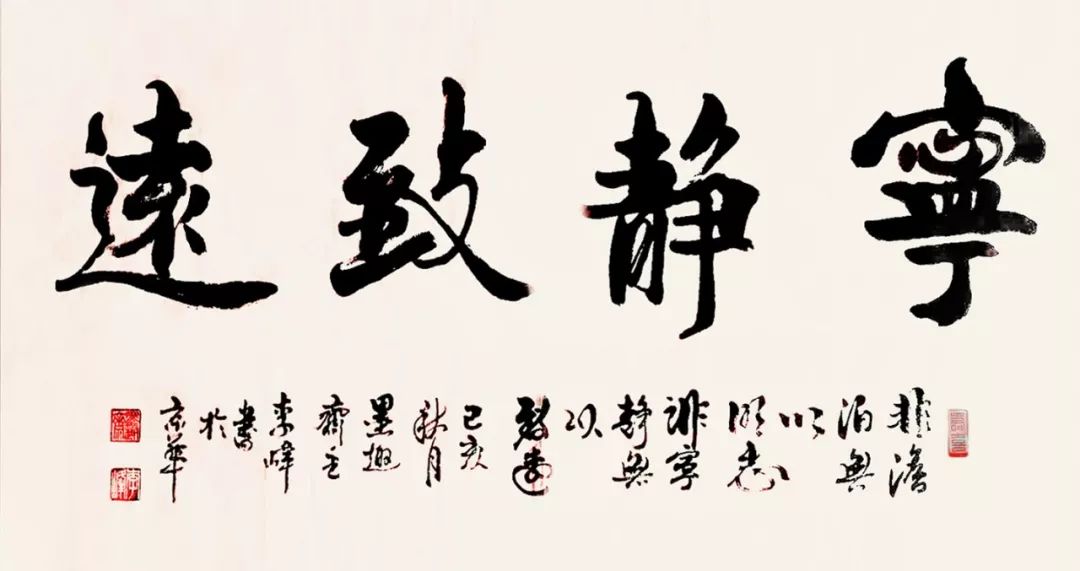 寧静致遠
非澹
泊無
以
明志
非寧
静無
以
致遠
己亥
秋月
墨趣
齋主
峰
書
於
京華